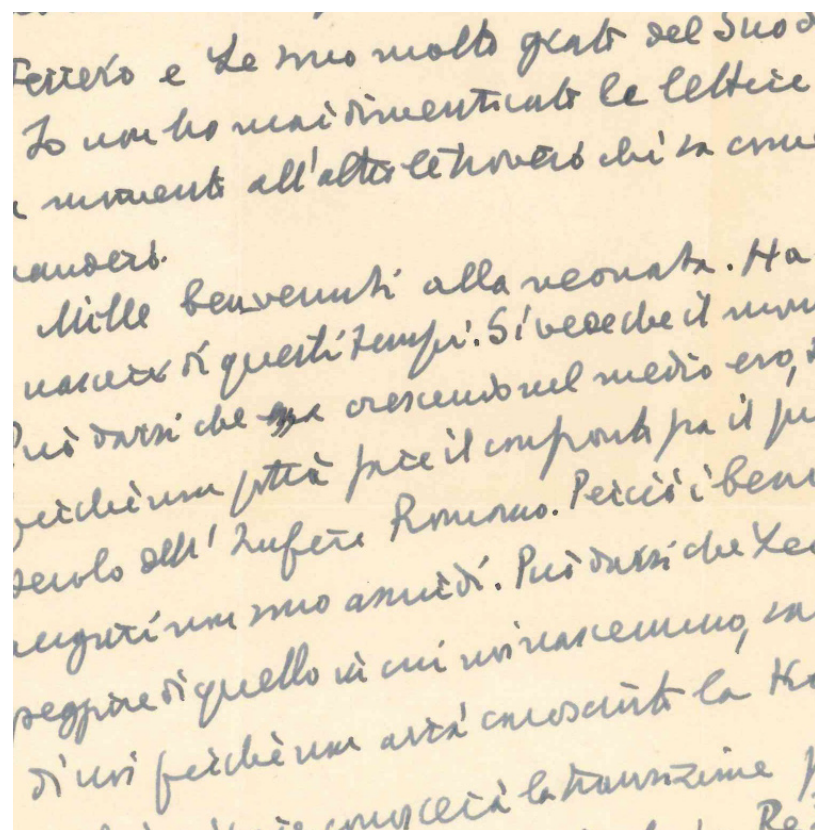 Ferrero e Le sono molto grato del Suo d
Io non ho mai dimenticato le lettere
momento all'altro le troverò chi sa come
manderò.
Mille benvenuti alla neonata. Ha
nascere di questi tempi. Si vede che il mon
Può darsi che crescendo nel medio evo,
perché non potrà fare il confronto fra il
secolo dell'Impero Romano. Perciò i benv
auguri non sono assurdi. Può darsi che
peggiore di quello in cui noi nascemmo, sa
di noi perché non avrà conosciuto la
conoscerà la transizione
Re